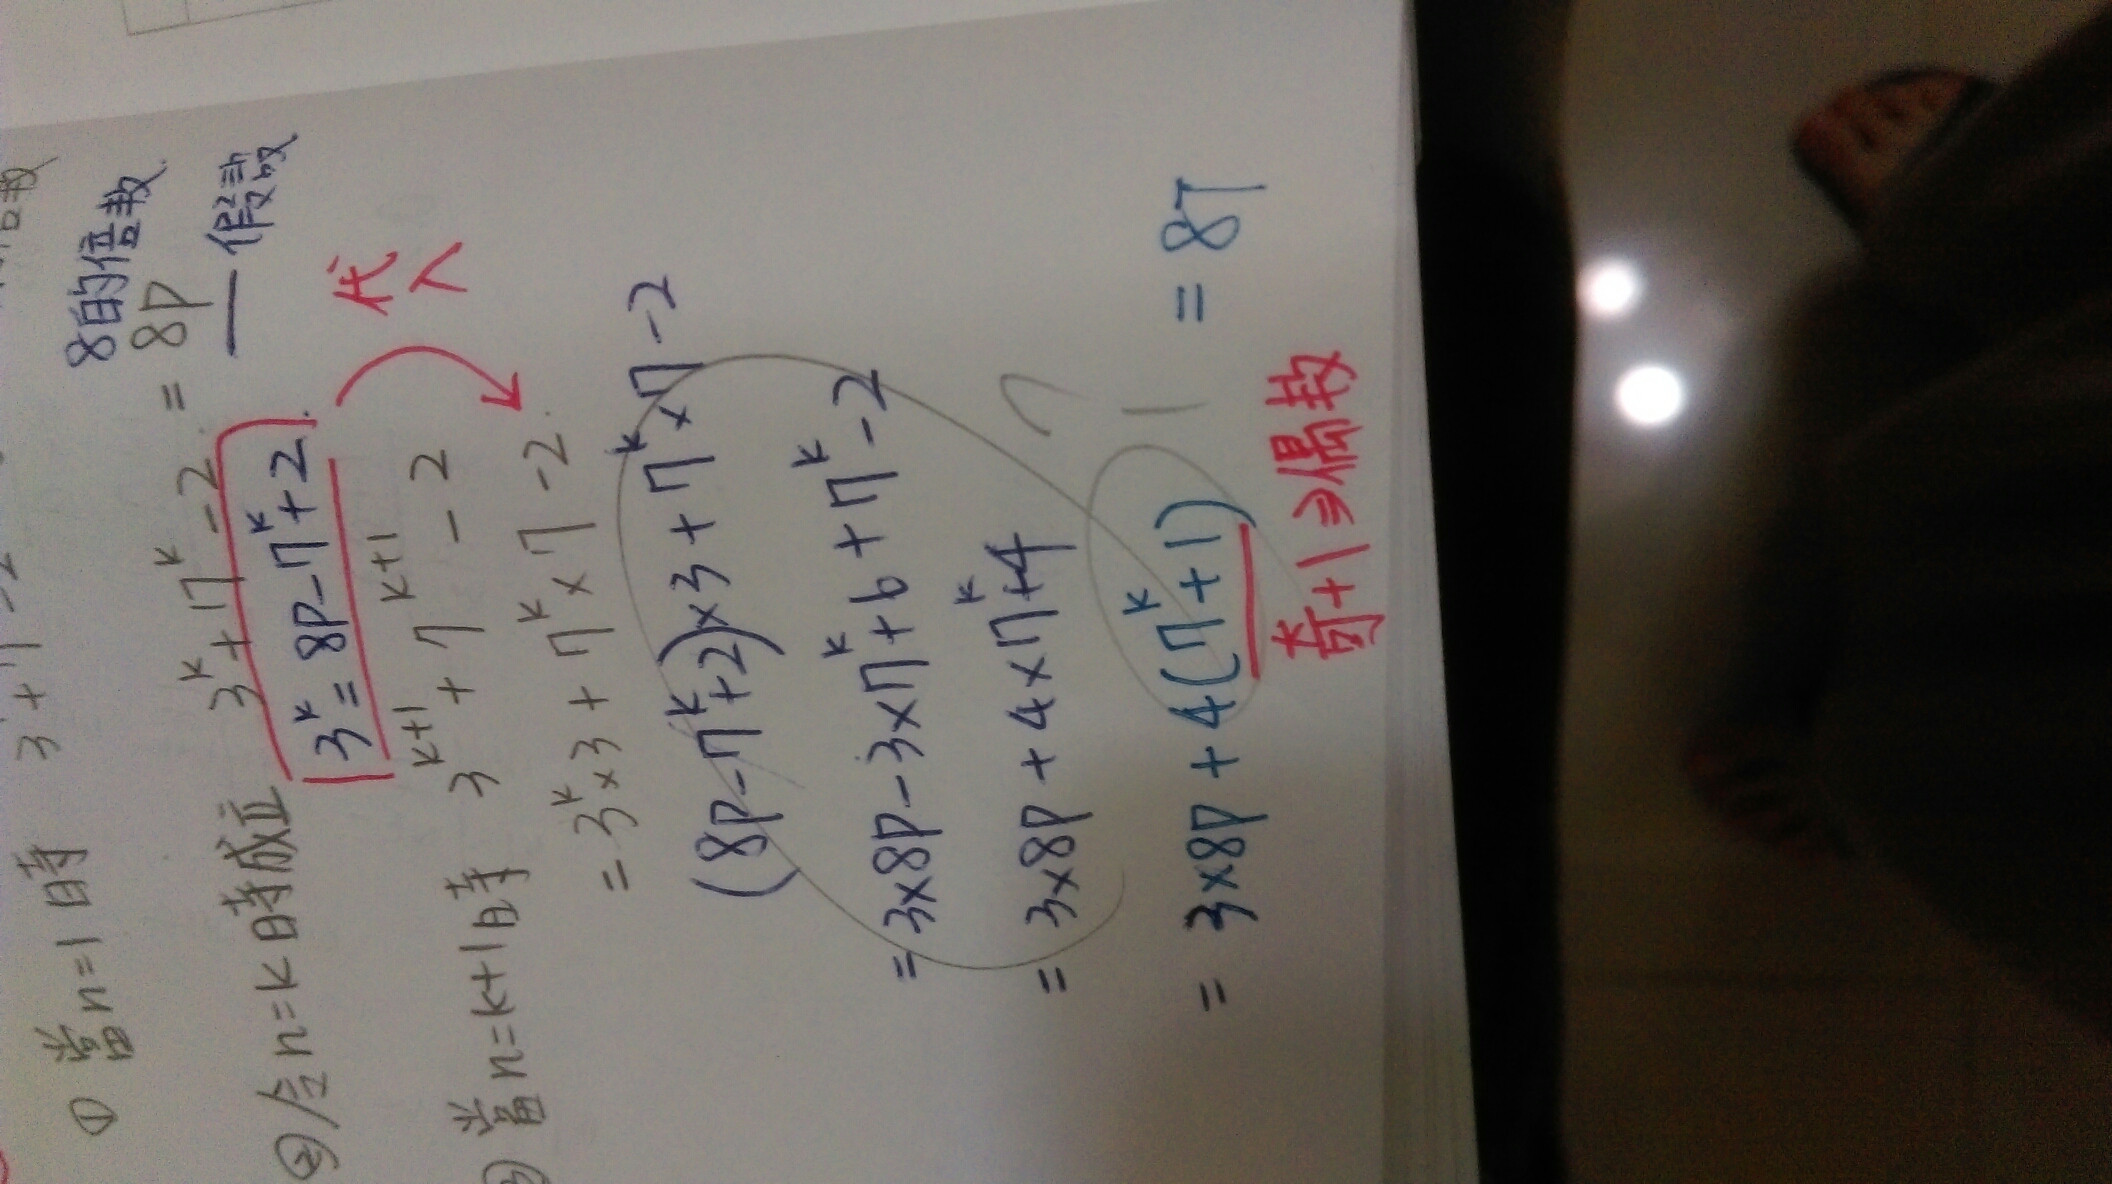 ① 當n=1時 3+7-2
8的倍數
②令n=k時成立 3^k+7^k-2=8p
3^k=8p-7^k+2 —假設
代入
當n=k+1時 3^{k+1}+7^{k+1}-2
=3^k×3+7^k×7-2
(8p-7^k+2)×3+7^k×7-2
=3×8p-3×7^k+6+7^k-2
=3×8p+4×7^k+4
=3×8p+4(7^k+1) =8T
奇+1⇒偶數